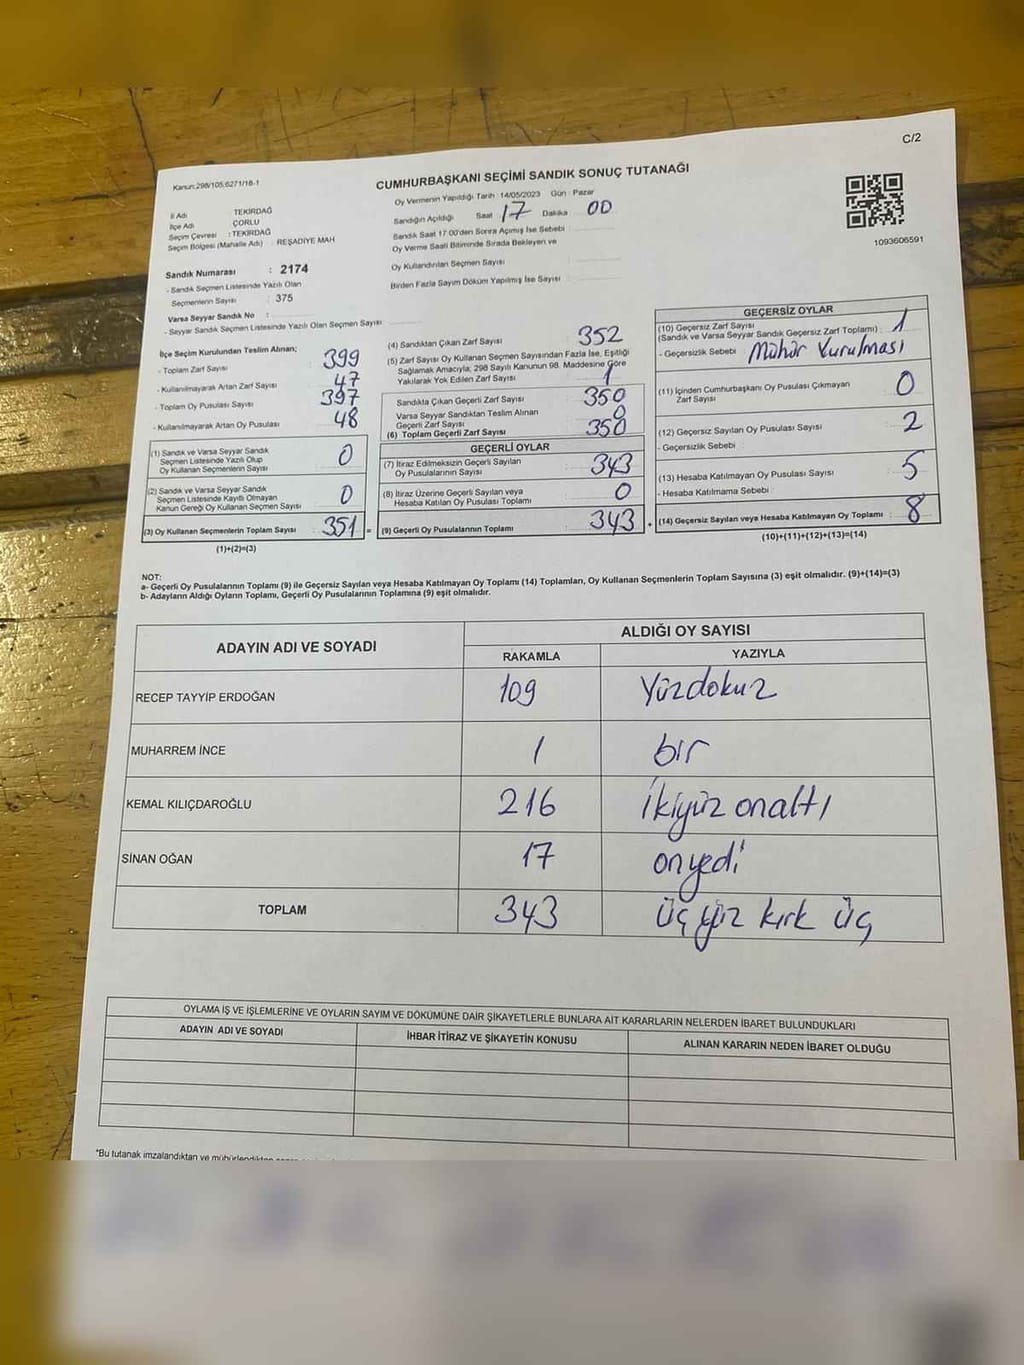 C/2
Kanun:298/105;6271/18-1
CUMHURBAŞKANI SEÇİMİ SANDIK SONUÇ TUTANAĞI
İl Adı TEKİRDAĞ
İlçe Adı ÇORLU
Seçim Çevresi : TEKİRDAĞ
Seçim Bölgesi (Mahalle Adı) : REŞADİYE MAH
Oy Vermenin Yapıldığı Tarih : 14/05/2023 Gün : Pazar
Sandığın Açıldığı Saat 17 Dakika 00
Sandık Saat 17:00'den Sonra Açımış İse Sebebi :
Oy Verme Saati Bitiminde Sırada Bekleyen ve
Oy Kullandırılan Seçmen Sayısı :
Birden Fazla Sayım Döküm Yapılmış İse Sayısı :
1093606591
Sandık Numarası : 2174
- Sandık Seçmen Listesinde Yazılı Olan
Seçmenlerin Sayısı : 375
Varsa Seyyar Sandık No :
- Seyyar Sandık Seçmen Listesinde Yazılı Olan Seçmen Sayısı
İlçe Seçim Kurulundan Teslim Alınan;
- Toplam Zarf Sayısı 399
- Kullanılmayarak Artan Zarf Sayısı 47
- Toplam Oy Pusulası Sayısı 397
- Kullanılmayarak Artan Oy Pusulası 48
(1) Sandık ve Varsa Seyyar Sandık
Seçmen Listesinde Yazılı Olup
Oy Kullanan Seçmenlerin Sayısı : 0
(2) Sandık ve Varsa Seyyar Sandık
Seçmen Listesinde Kayıtlı Olmayan
Kanun Gereği Oy Kullanan Seçmen Sayısı : 0
(3) Oy Kullanan Seçmenlerin Toplam Sayısı : 351 =
(1)+(2)=(3)
(4) Sandıktan Çıkan Zarf Sayısı : 352
(5) Zarf Sayısı Oy Kullanan Seçmen Sayısından Fazla İse, Eşitliği
Sağlamak Amacıyla; 298 Sayılı Kanunun 98. Maddesine Göre
Yakılarak Yok Edilen Zarf Sayısı : 1
Sandıkta Çıkan Geçerli Zarf Sayısı : 350
Varsa Seyyar Sandıktan Teslim Alınan
Geçerli Zarf Sayısı : 0
(6) Toplam Geçerli Zarf Sayısı : 350
GEÇERLİ OYLAR
(7) İtiraz Edilmeksizin Geçerli Sayılan
Oy Pusulalarının Sayısı : 343
(8) İtiraz Üzerine Geçerli Sayılan veya
Hesaba Katılan Oy Pusulası Toplamı : 0
(9) Geçerli Oy Pusulalarının Toplamı : 343 +
GEÇERSİZ OYLAR
(10) Geçersiz Zarf Sayısı
(Sandık ve Varsa Seyyar Sandık Geçersiz Zarf Toplamı) : 1
- Geçersizlik Sebebi : Mühür Vurulması
(11) İçinden Cumhurbaşkanı Oy Pusulası Çıkmayan
Zarf Sayısı : 0
(12) Geçersiz Sayılan Oy Pusulası Sayısı : 2
- Geçersizlik Sebebi :
(13) Hesaba Katılmayan Oy Pusulası Sayısı : 5
- Hesaba Katılmama Sebebi :
(14) Geçersiz Sayılan veya Hesaba Katılmayan Oy Toplamı : 8
(10)+(11)+(12)+(13)=(14)
NOT:
a- Geçerli Oy Pusulalarının Toplamı (9) ile Geçersiz Sayılan veya Hesaba Katılmayan Oy Toplamı (14) Toplamları, Oy Kullanan Seçmenlerin Toplam Sayısına (3) eşit olmalıdır. (9)+(14)=(3)
b- Adayların Aldığı Oyların Toplamı, Geçerli Oy Pusulalarının Toplamına (9) eşit olmalıdır.
ADAYIN ADI VE SOYADI
ALDIĞI OY SAYISI
RAKAMLA YAZIYLA
RECEP TAYYİP ERDOĞAN 109 Yüzdokuz
MUHARREM İNCE 1 bir
KEMAL KILIÇDAROĞLU 216 İkiyüz onaltı
SİNAN OĞAN 17 onyedi
TOPLAM 343 üç yüz kırk üç
OYLAMA İŞ VE İŞLEMLERİNE VE OYLARIN SAYIM VE DÖKÜMÜNE DAİR ŞİKAYETLERLE BUNLARA AİT KARARLARIN NELERDEN İBARET BULUNDUKLARI
ADAYIN ADI VE SOYADI İHBAR İTİRAZ VE ŞİKAYETİN KONUSU ALINAN KARARIN NEDEN İBARET OLDUĞU
*Bu tutanak imzalandıktan ve mühürlendikten